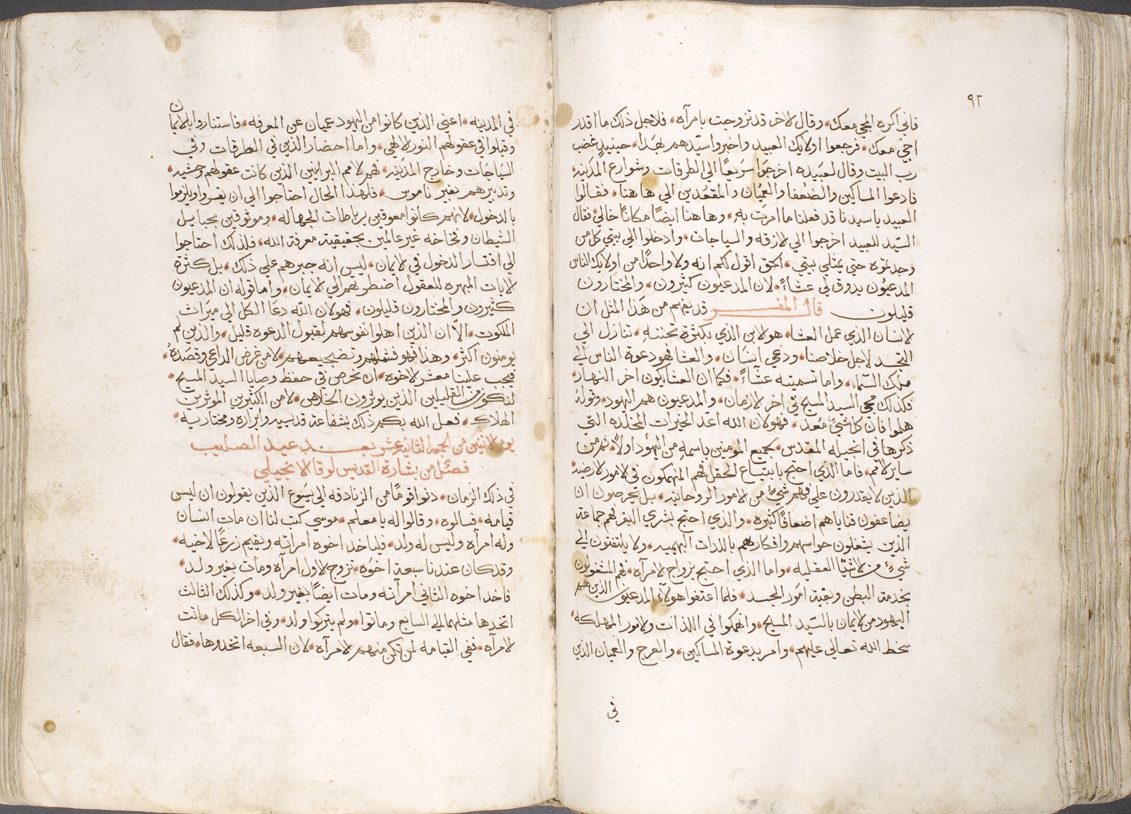 ٩٢
فاني اكره المجي معك وقال لاخر قد تزوجت بامرآه فلاجل ذلك ما اقدر
اجي معك فرجعوا اوليك العبيد واخبروا سيدهم بهدا حينيد غضب
رب البيت وقال لعبيده اخرجوا سريعاً الي الطرقات وشوارع المدينه
فادعوا المساكين والضعفا والعميان والمقعدين الي هاهنا فقالوا
العبيد ياسيدنا قد فعلنا ما امرت به وهاهنا ايضاً مكاناً خالي فقال
السيد للعبيد اخرجوا الي لازقه والسياجات وادخلوا الي بيتي كل من
وجدتموه حتى يمتلي بيتي الحق اقول لكم انه ولا واحداً من اوليك الناس
المدعيون يدوق لي عشاً لان المدعيون كثيرون والمختارون
قليلون قال المفسر قد يفهم من هذا المثل ان
لانسان الذي عمل العشا هو لابن الذي بكثرة تحننه تنازل الي
التجسد لاجل خلاصنا ودعي انسان والعشا فهو دعوة الناس الي
ملك السما واما تسميته عشاً فكما ان العشا يكون اخر النهار
فكذلك مجي السيد المسيح في اخر لازمان والمدعيون هم اليهود وقوله
هلموا فان كل شيء معد فهو لان الله اعد الخيرات المخلده التي
ذكرها في انجيله المقدس لجميع المومنين باسمه من اليهود اولاً ثم من
ساير لامم فاما الذي احتج بابتياع الحقل فهم المنهمكون في لامور لارضيه
الذين لا يقدرون علي فهم شيء من لامور الروحانيه بل يحرصون ان
يضاعفون قناياهم اضعافاً كثيره والذي احتج بشري البقر فهم جماعة
الذين يشغلون حواسهم وافكارهم باللذات البهيميه ولا يلتفتون الي
شيء من لاشيا العقليه واما الذي احتج بزواج لامرآه فهم المشغولون
بخدمة البطن وبقية امور الجسد فلما اعتفوا هولاء المدعيون الذين هم
اليهود من لايمان بالسيد المسيح وانهمكوا في اللذات ولامور المهلكه
سخط الله تعالي عليهم وامر بدعوة المساكين والعرج والعميان الذين
في
في المدينه اعني الذين كانوا من اليهود عميان عن المعرفه فاستناروا بلايمان
وقبلوا في عقولهم النور لالهي واما احضار الذين في الطرقات وفي
السياجات وخارج المدينه فهم لامم البرانيين الذين كانت عقولهم
وتدبيرهم بغير ناموس فلهذا الحال احتاجوا الي ان يغسروا ويلزموا
بالدخول لانهم كانوا معوقين برباطات الجهاله وموثوقين بحبايل
الشيطان وفخاخه غير عالمين بحقيقة معرفة الله فلذلك احتاجوا
الي اقتسار الدخول في لايمان ليس انه جبرهم علي ذلك بل كثرة
لايات المبهره للعقول اضطرتهم الي لايمان واما قوله ان المدعيون
كثيرون والمختارون قليلون فهو لان الله دعا الكل الي ميراث
الملكوت الا ان الذين اهلوا نفوسهم لقبول الدعوه قليل والذين لم
يومنون اكثر وهذا فهو لا من غرض الداعي وقصده
فيجب علينا معشر لاخوه ان نحرص في حفظ وصايا السيد المسيح
لنكون من القليلين الذين يوثرون الخلاص لا من الكثيرين الموثرين
الهلاك فعل الله بكم ذلك بشفاعة قديسيه وابراره ومختاريه
يوم لاثنين من الجمعه الثانيه عشر بعد عيد الصليب
فصل من بشارة القديس لوقا الانجيلي
في ذلك الزمان دنوا قوماً من الزنادقه الي يسوع الذين يقولون ان ليس
قيامه فسالوه وقالوا له يا معلم موسي كتب لنا ان مات انسان
وله امرآه وليس له ولد فلياخد اخوه امراته ويقيم زرعاً لاخيه
وقد كان عندنا سبعة اخوه تزوج لاول امرآه ومات بغير ولد
فاخد اخوه الثاني امرآته ومات ايضاً بغير ولد وكذلك الثالث
اتخدها مثلهما الي السابع وماتوا ولم يتركوا ولد وفي اخر الكل ماتت
لامرآه ففي القيامه لمن تكن منهم لامرآه لان السبعه اتخدوها فقال